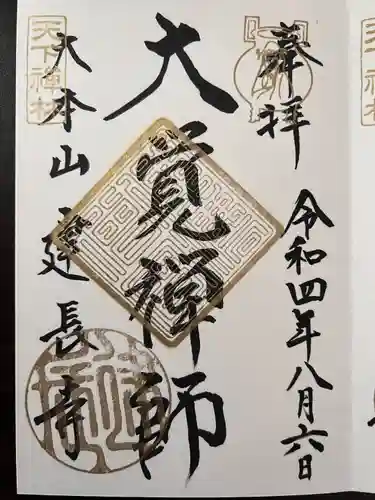 奉拝
令和四年八月六日
大覚禅師
大本山建長寺
天下禅林